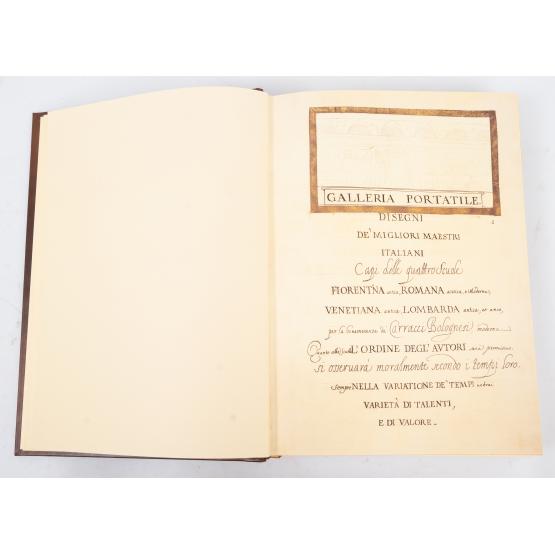 GALLERIA PORTATILE
DISEGNI
DE' MIGLIORI MAESTRI
ITALIANI
Capi delle quattro Scuole
FIORENTINA antica, ROMANA antica, e Moderna,
VENETIANA antica, LOMBARDA antica, et anco,
per la di Carracci Bolognesi moderna
Quanto L'ORDINE DEGL'AVTORI
si osseruarà moralmente secondo i tempi loro
sempre NELLA VARIATIONE DE' TEMPI
VARIETÀ DI TALENTI,
E DI VALORE.